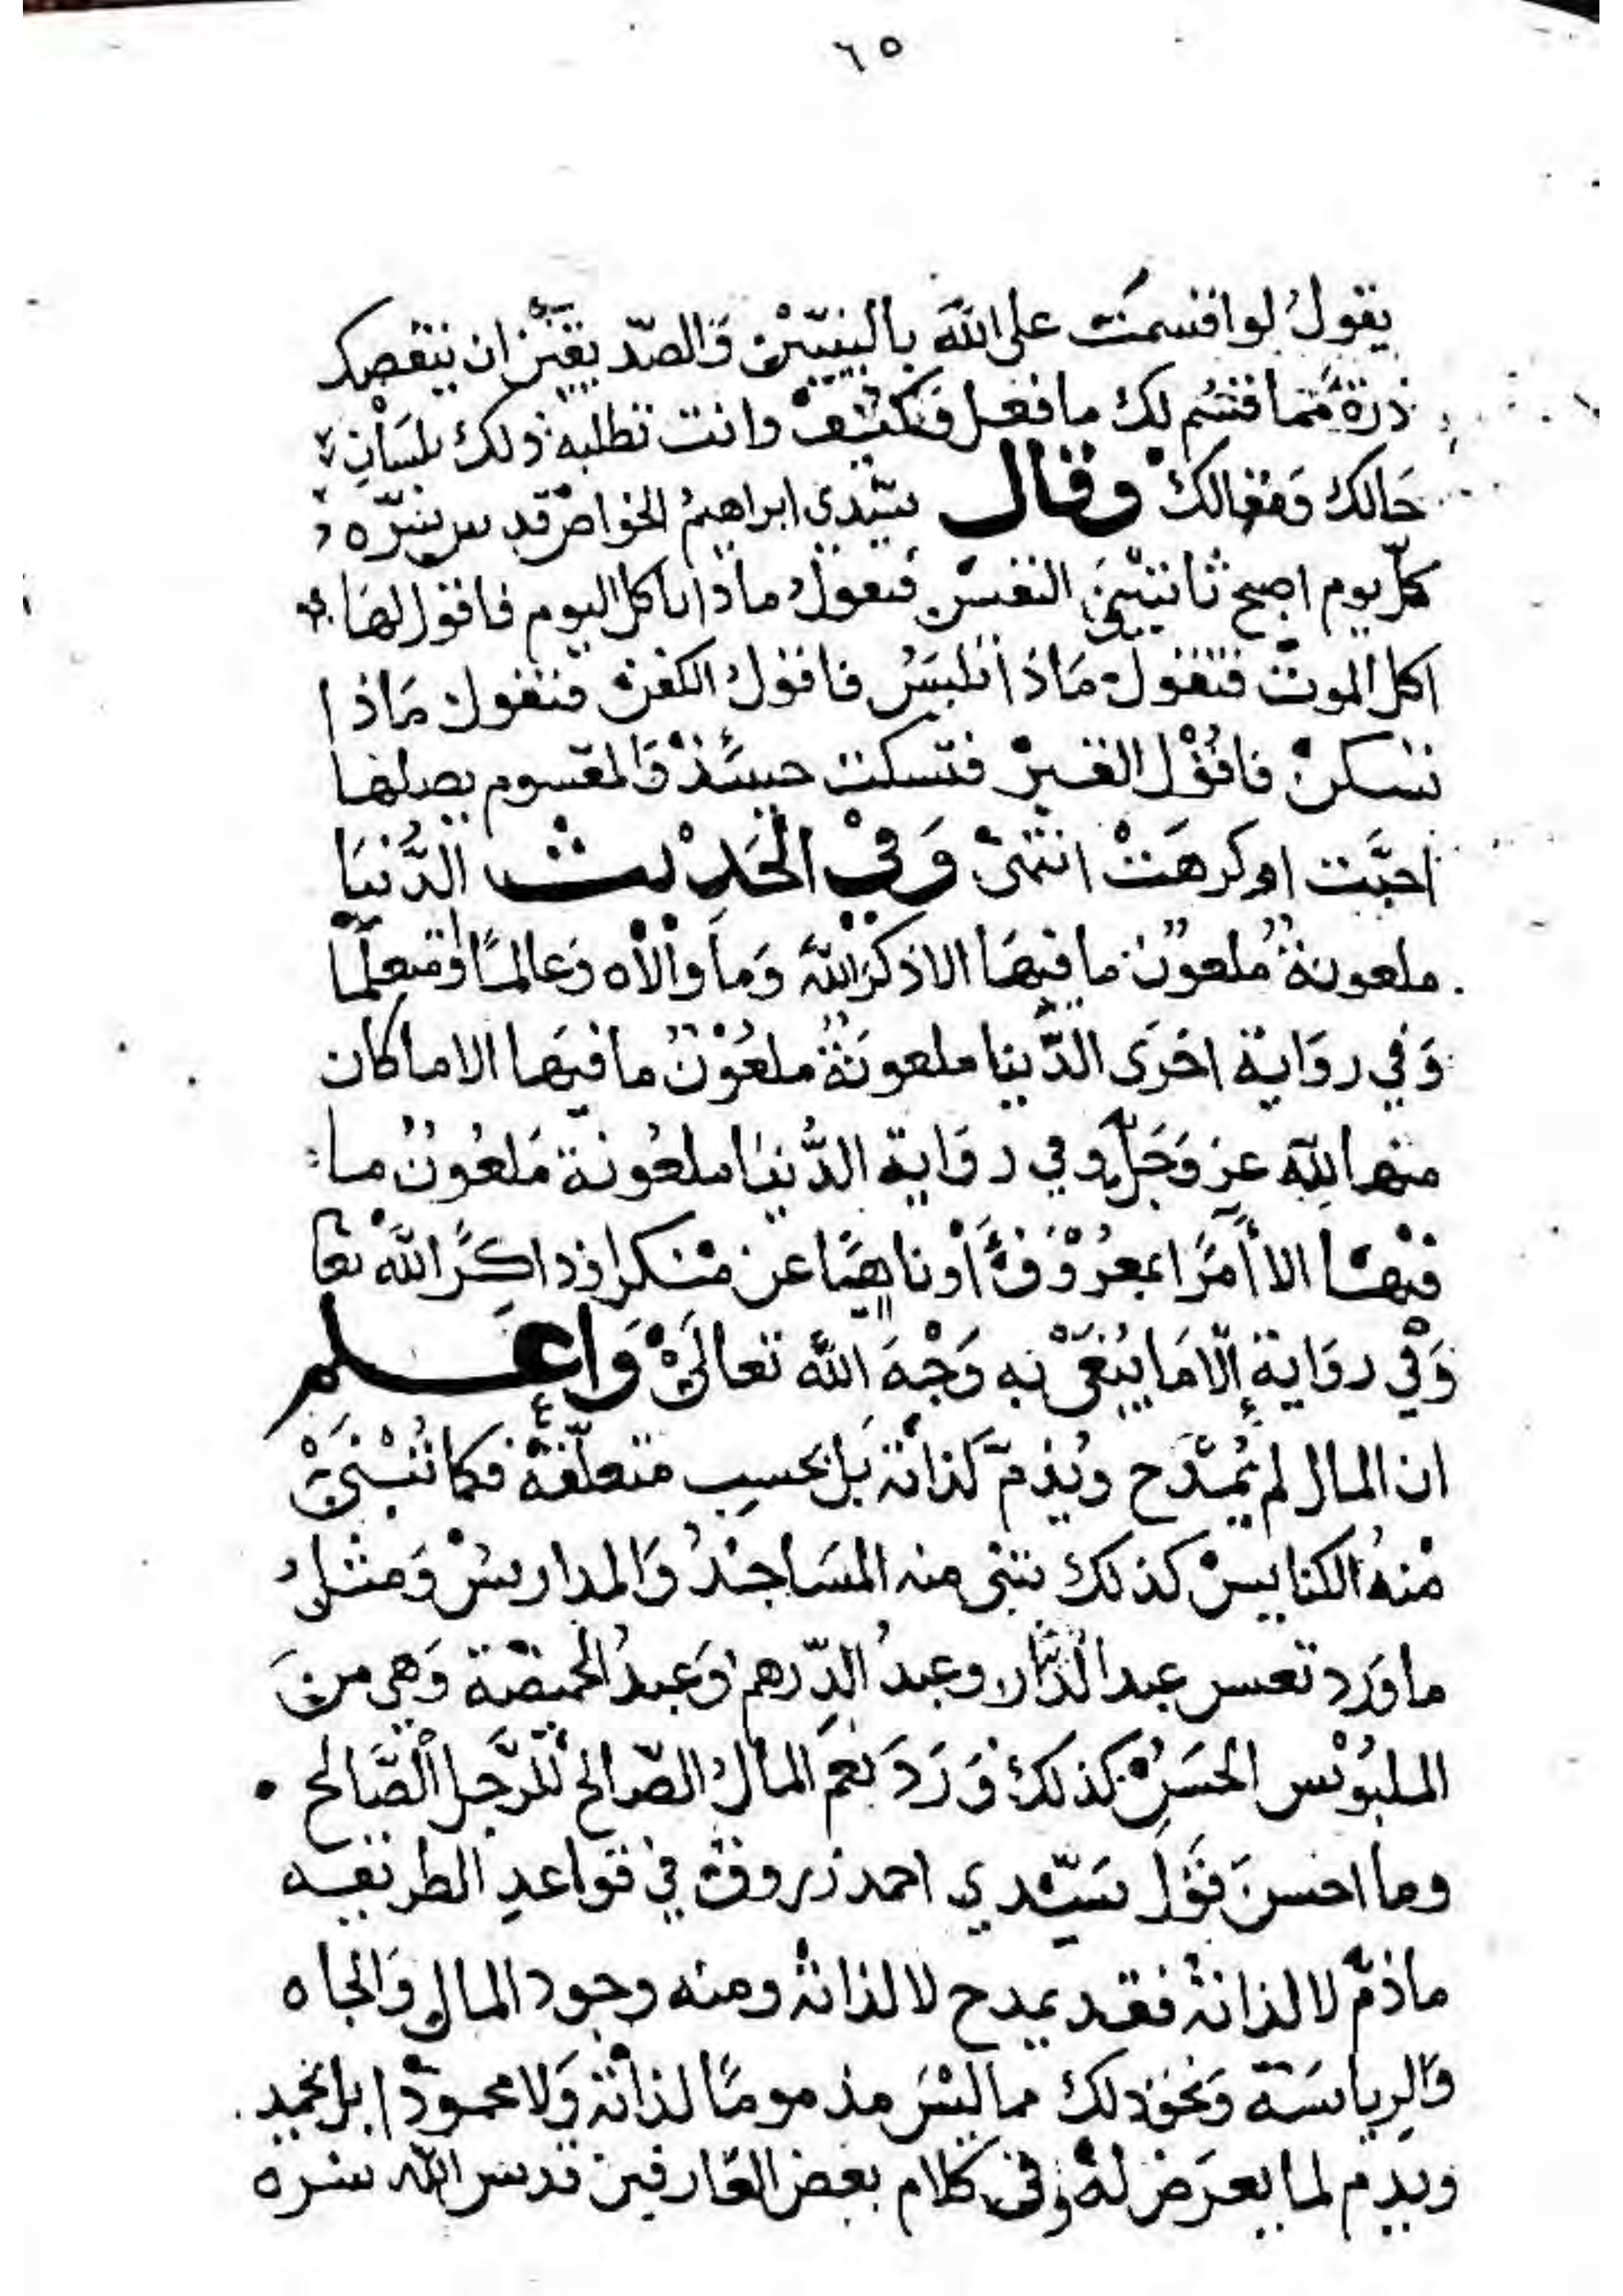 ٦٥
يقول لو اقسمت على الله بالنبيين والصديقين ان ينقصك
ذرة مما قسم لك ما فعل فكيف وانت تطلبه ذلك بلسان
حالك ومقالك وقال سيدي ابراهيم الخواص قدس سره
كل يوم اصبح تأتيني النفس فتقول ماذا نأكل اليوم فاقول لها
اكل الموت فتقول ماذا نلبس فاقول الكفن فتقول ماذا
نسكن فاقول القبر فتسكت حينئذ والمقسوم يصلها
احبت او كرهت انتهى وَفي الحَدِيث الدُّنيَا
ملعونة ملعون ما فيهَا الا ذكر الله وَمَا والاه وعالمًا ومتعلمًا
وَفي روَاية اخرَى الدّنيا ملعونة ملعون ما فيهَا الا ما كان
منها لله عز وَجَلّ وفي روَاية الدُّنيا ملعُونة مَلعُونٌ ما
فيهَا الا أمرًا بمعرُوف أو ناهيًا عن منكر او ذاكرًا الله تعا
وَفي روَاية إلّا مَا يُبتغى به وَجْهَ الله تعالى وَاعلم
ان المال لم يُمدَح ويُذمّ لذاته بَل بحسب متعلّقه فكما تُبْنى
مْنهُ الكنايس كذلك يبنى منه المسَاجدُ وَالمدارسْ وَمثلُ
ما وَرَد تعس عبد الدينار وعبدُ الدّرهم وَعبدُ الخميصة وَهي منَ
الملبوس الحسَن كذلك وَرَدَ نعمَ المالُ الصّالح للرَّجل الصَّالح
وما احسنَ قَوْلَ سَيّدي احمد زروق في قواعدِ الطريقه
ما ذمّ لا لذاته فقد يمدح لا لذاته ومنه وجود المال وَالجاه
وَالرياسَة وَنحو ذلك مما ليْسَ مذمومًا لذاته وَلا محمودًا بل يحمد
ويذم لما يعرَض لهُ وفي كلام بعض العارفين قدس الله سره